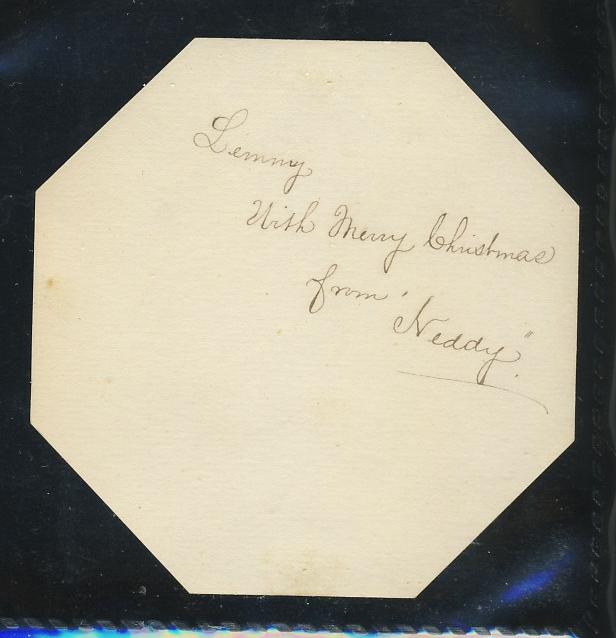 Lemmy
With Merry Christmas
from "Neddy".